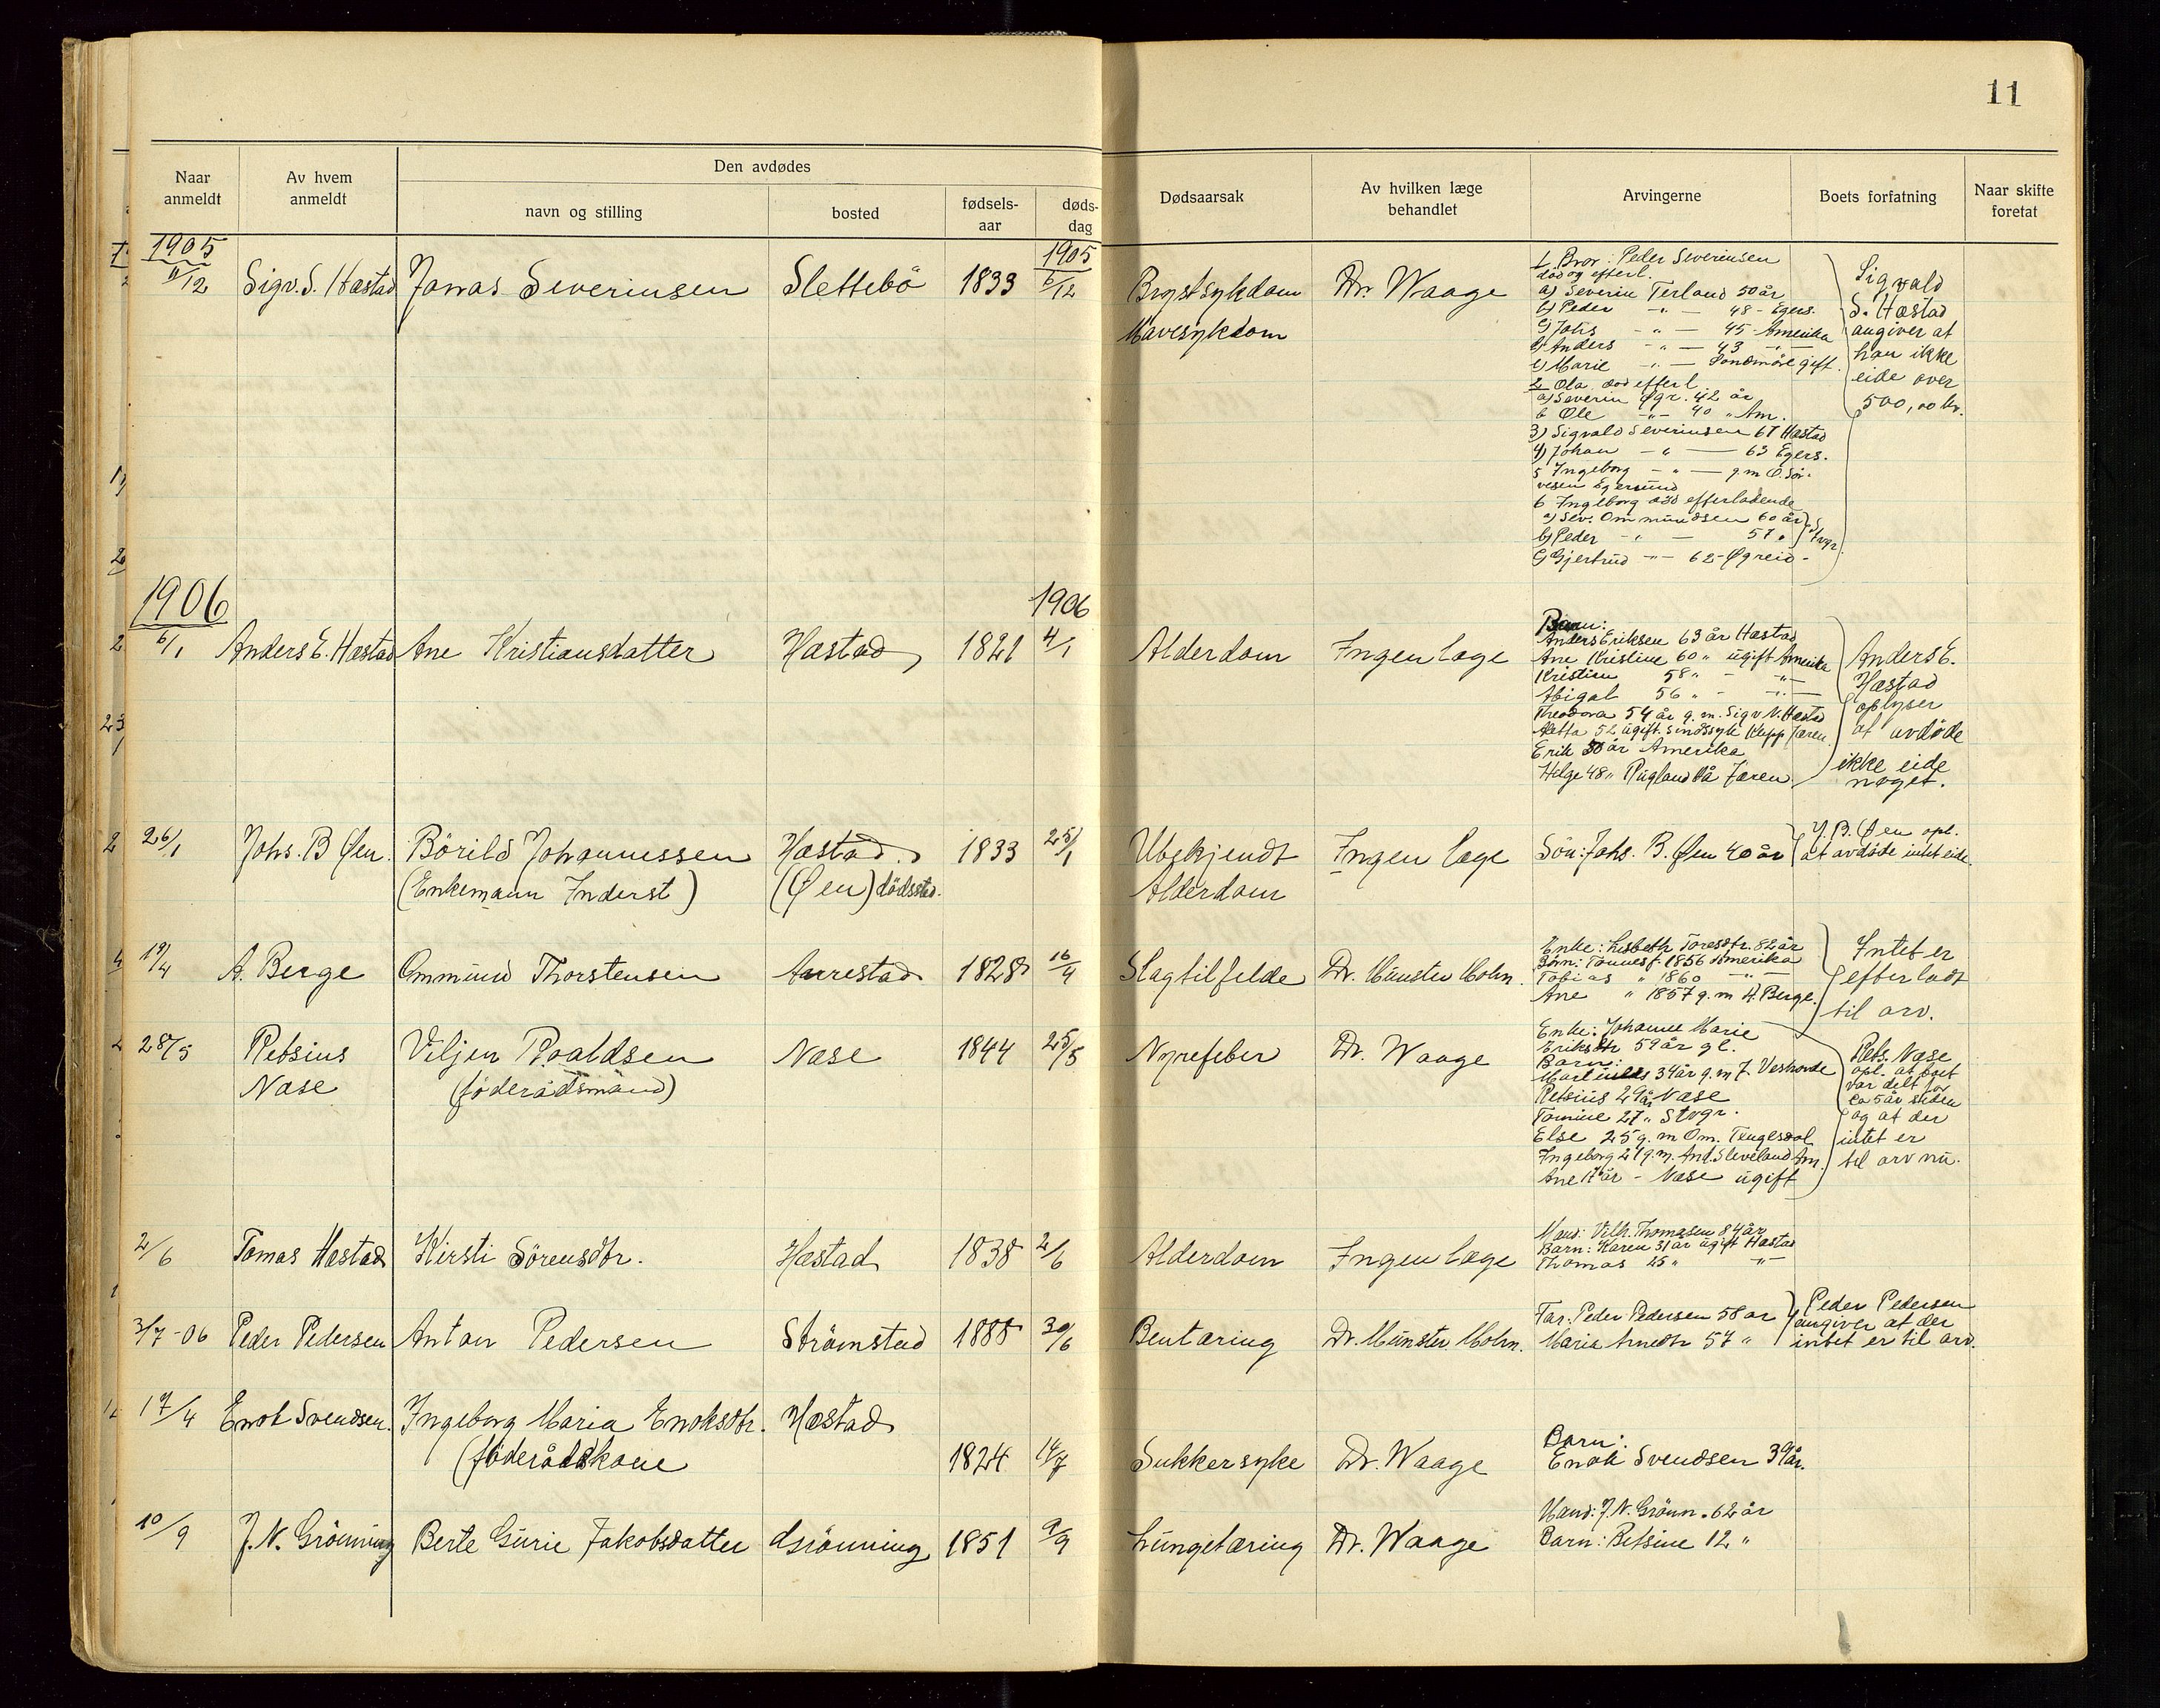 11
Naar anmeldt
Av hvem anmeldt
Den avdødes
navn og stilling
bosted
fødsels-aar
døds-dag
Dødsaarsak
Av hvilken læge behandlet
Arvingerne
Boets forfatning
Naar skifte foretat
1905
1905
11/12 Sigv. S. Hæstad Jonas Severinsen Slettebö 1833 6/12 Brystsykdom Dr. Waage
Mavesykdom
1 Bror: Peder Severinsen
död og efterl.
a) Severin Terland 50 år
b) Peder -"- 48 - Egers.
c) Johs -"- 45 - Amerika
d) Anders -"- 43 -"-
e) Marie -"- gift.
2 Ola död efterl
a) Severin Øgr. 42 år
b Ole -"- 40 " Am.
3) Sigvald Severinsen 67 Hæstad
4) Johan -"- 63 Egers.
5 Ingeborg -"- g.m O. Sör-
visen Egersund
6 Ingeborg död efterladende
a) Sev. Ommundsen 60 år
b) Peder -"- 57 "
c) Gjertrud -"- 62 - Øgreid -
Sigvald
S. Hæstad
angiver at
han ikke
eide over
500,00 kr.
1906
1906
6/1 Anders E. Hæstad Ane Kristiansdatter Hæstad 1821 4/1 Alderdom Ingen læge
Barn:
Anders Eriksen 63 år Hæstad
Ane Kristine 60 " ugift Amerika
Kristian 58 " - -"-
Abigal 56 " - -"-
Theodora 54 år g.m. Sigv N. Hæstad
Aletta 52 ugift. sindssyk Klepp Jæren
Erik 50 år Amerika
Helge 48 " Rugland på Jæren
Anders E.
Hæstad
oplyser
at avdöde
ikke eide
noget.
26/1 Johs. B Øen. Börild Johannessen Hæstad. 1833 25/1 Ubekjendt Ingen læge Sön: Johs. B. Øen 40 år
(Enkemann Inderst) (Øen) dödsstad. Alderdom
J. B. Øen opl.
at avdöde intet eide.
19/4 A. Berge Ommund Thorstensen Aarrestad 1828 16/4 Slagtilfelde Dr. Münster Mohn.
Enke: Lisbeth Toresdtr. 82 år
Börn: Tönnes f. 1856 Amerika
Tobias " 1860 -"-
Ane " 1857 g.m A. Berge.
Intet er
efterladt
til arv.
28/5 Retsius Viljen Roaldsen Næse 1844 25/5 Nyrefeber Dr. Waage
Næse (föderådsmand)
Enke: Johanne Marie
Eriksdtr 59 år gl.
Barn:
34 år g.m J. Veshovde
Retsius 29 år Næse
Tomine 27 " Stvgr.
Else 25 g.m Om. Tengesdal
Ingeborg 21 g.m. And. Sleveland Am.
Ane 17 år - Næse ugift
Rets. Næse
opl. at boet
var delt for
ca 5 år siden
og at der
intet er
til arv nu.
2/6 Tomas Hæstad Kirsti Sörensdtr. Hæstad 1838 2/6 Alderdom Ingen læge
Mand: Vilh. Thomasen 84 år
Barn: Karen 31 år ugift Hæstad
Thomas 25 " -"-
3/7-06 Peder Pedersen Anton Pedersen Strömstad 1888 30/6 Bentæring Dr. Münster Mohn.
Far: Peder Pedersen 58 år
Maria Arnedtr 57 "
Peder Pedersen
angiver at der
intet er til arv.
17/4 Enok Svendsen. Ingeborg Maria Enoksdtr. Hæstad
(föderådskone 1824 14/7 Sukkersyke Dr. Waage
Barn:
Enok Svendsen 39 år.
10/9 J. N. Grönning Berte Gurie Jakobsdatter Grönning 1851 9/9 Lungetæring Dr. Waage
Mand: J. N. Grönn. 62 år
Barn: Betsine 12 "